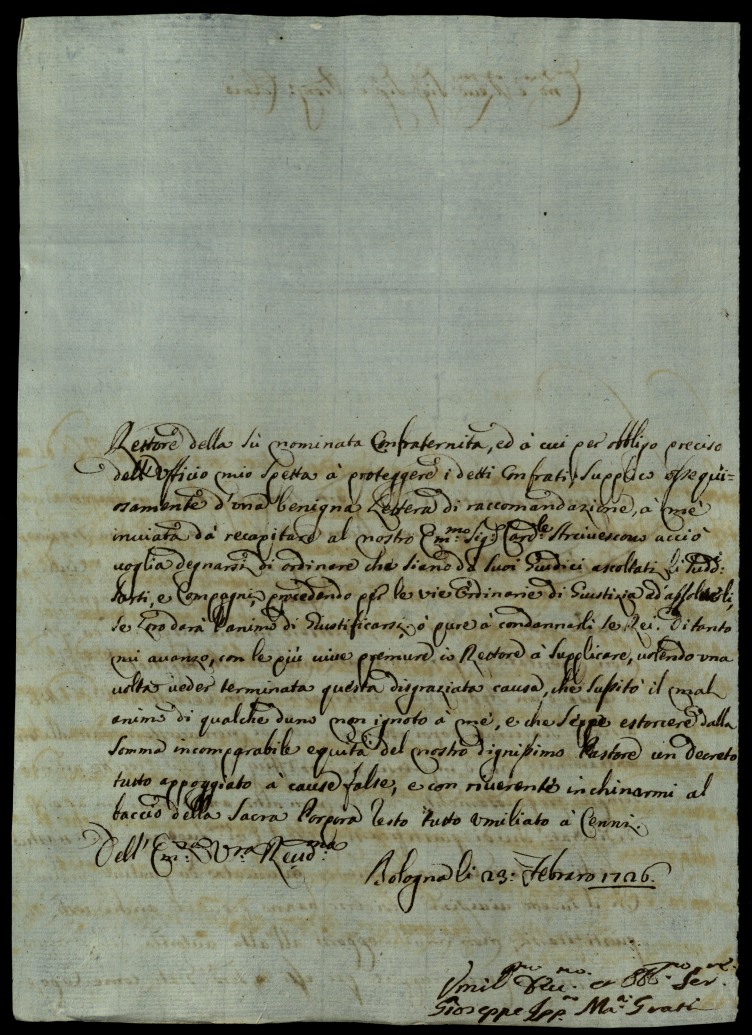 Rettore della sù nominata Confraternita, ed à cui per obbligo preciso
dell'Ufficio mio spetta à proteggere i detti Confrati, supplico ossequi=
osamente d'una benigna Lettera di raccomandazione, à me
inviata da recapitare al nostro Em.mo Sig.r Card.le Arcivescovo acciò
voglia degnarsi di ordinare che siano da suoi Giudici ascoltati li sudd:
Sarti, e Compagni, procedendo per le vie ordinarie di Giustizia ad assolverli,
se darà l'animo di Giustificarsi, ò pure à condannarli se Rei. Di tanto
mi avanzo, con le più vive premure io Rettore à supplicare, volendo una
volta veder terminata questa disgraziata causa, che suscitò il mal
animo di qualche duno non ignoto à me, e che seppe estorcere dalla
somma incomparabile equità del nostro dignissimo Pastore un decreto
tutto appoggiato à cause false, e con riverente inchinarmi al
baccio della Sacra Porpora resto tutto umiliato à Cenni.
Dell'Em.za V.ra Reud.ma
Bologna li 23: Febraro 1726.
Umil.mo Deu.mo et Obb.mo Ser.re
Gioseppe Ipp.to Ma. Grati